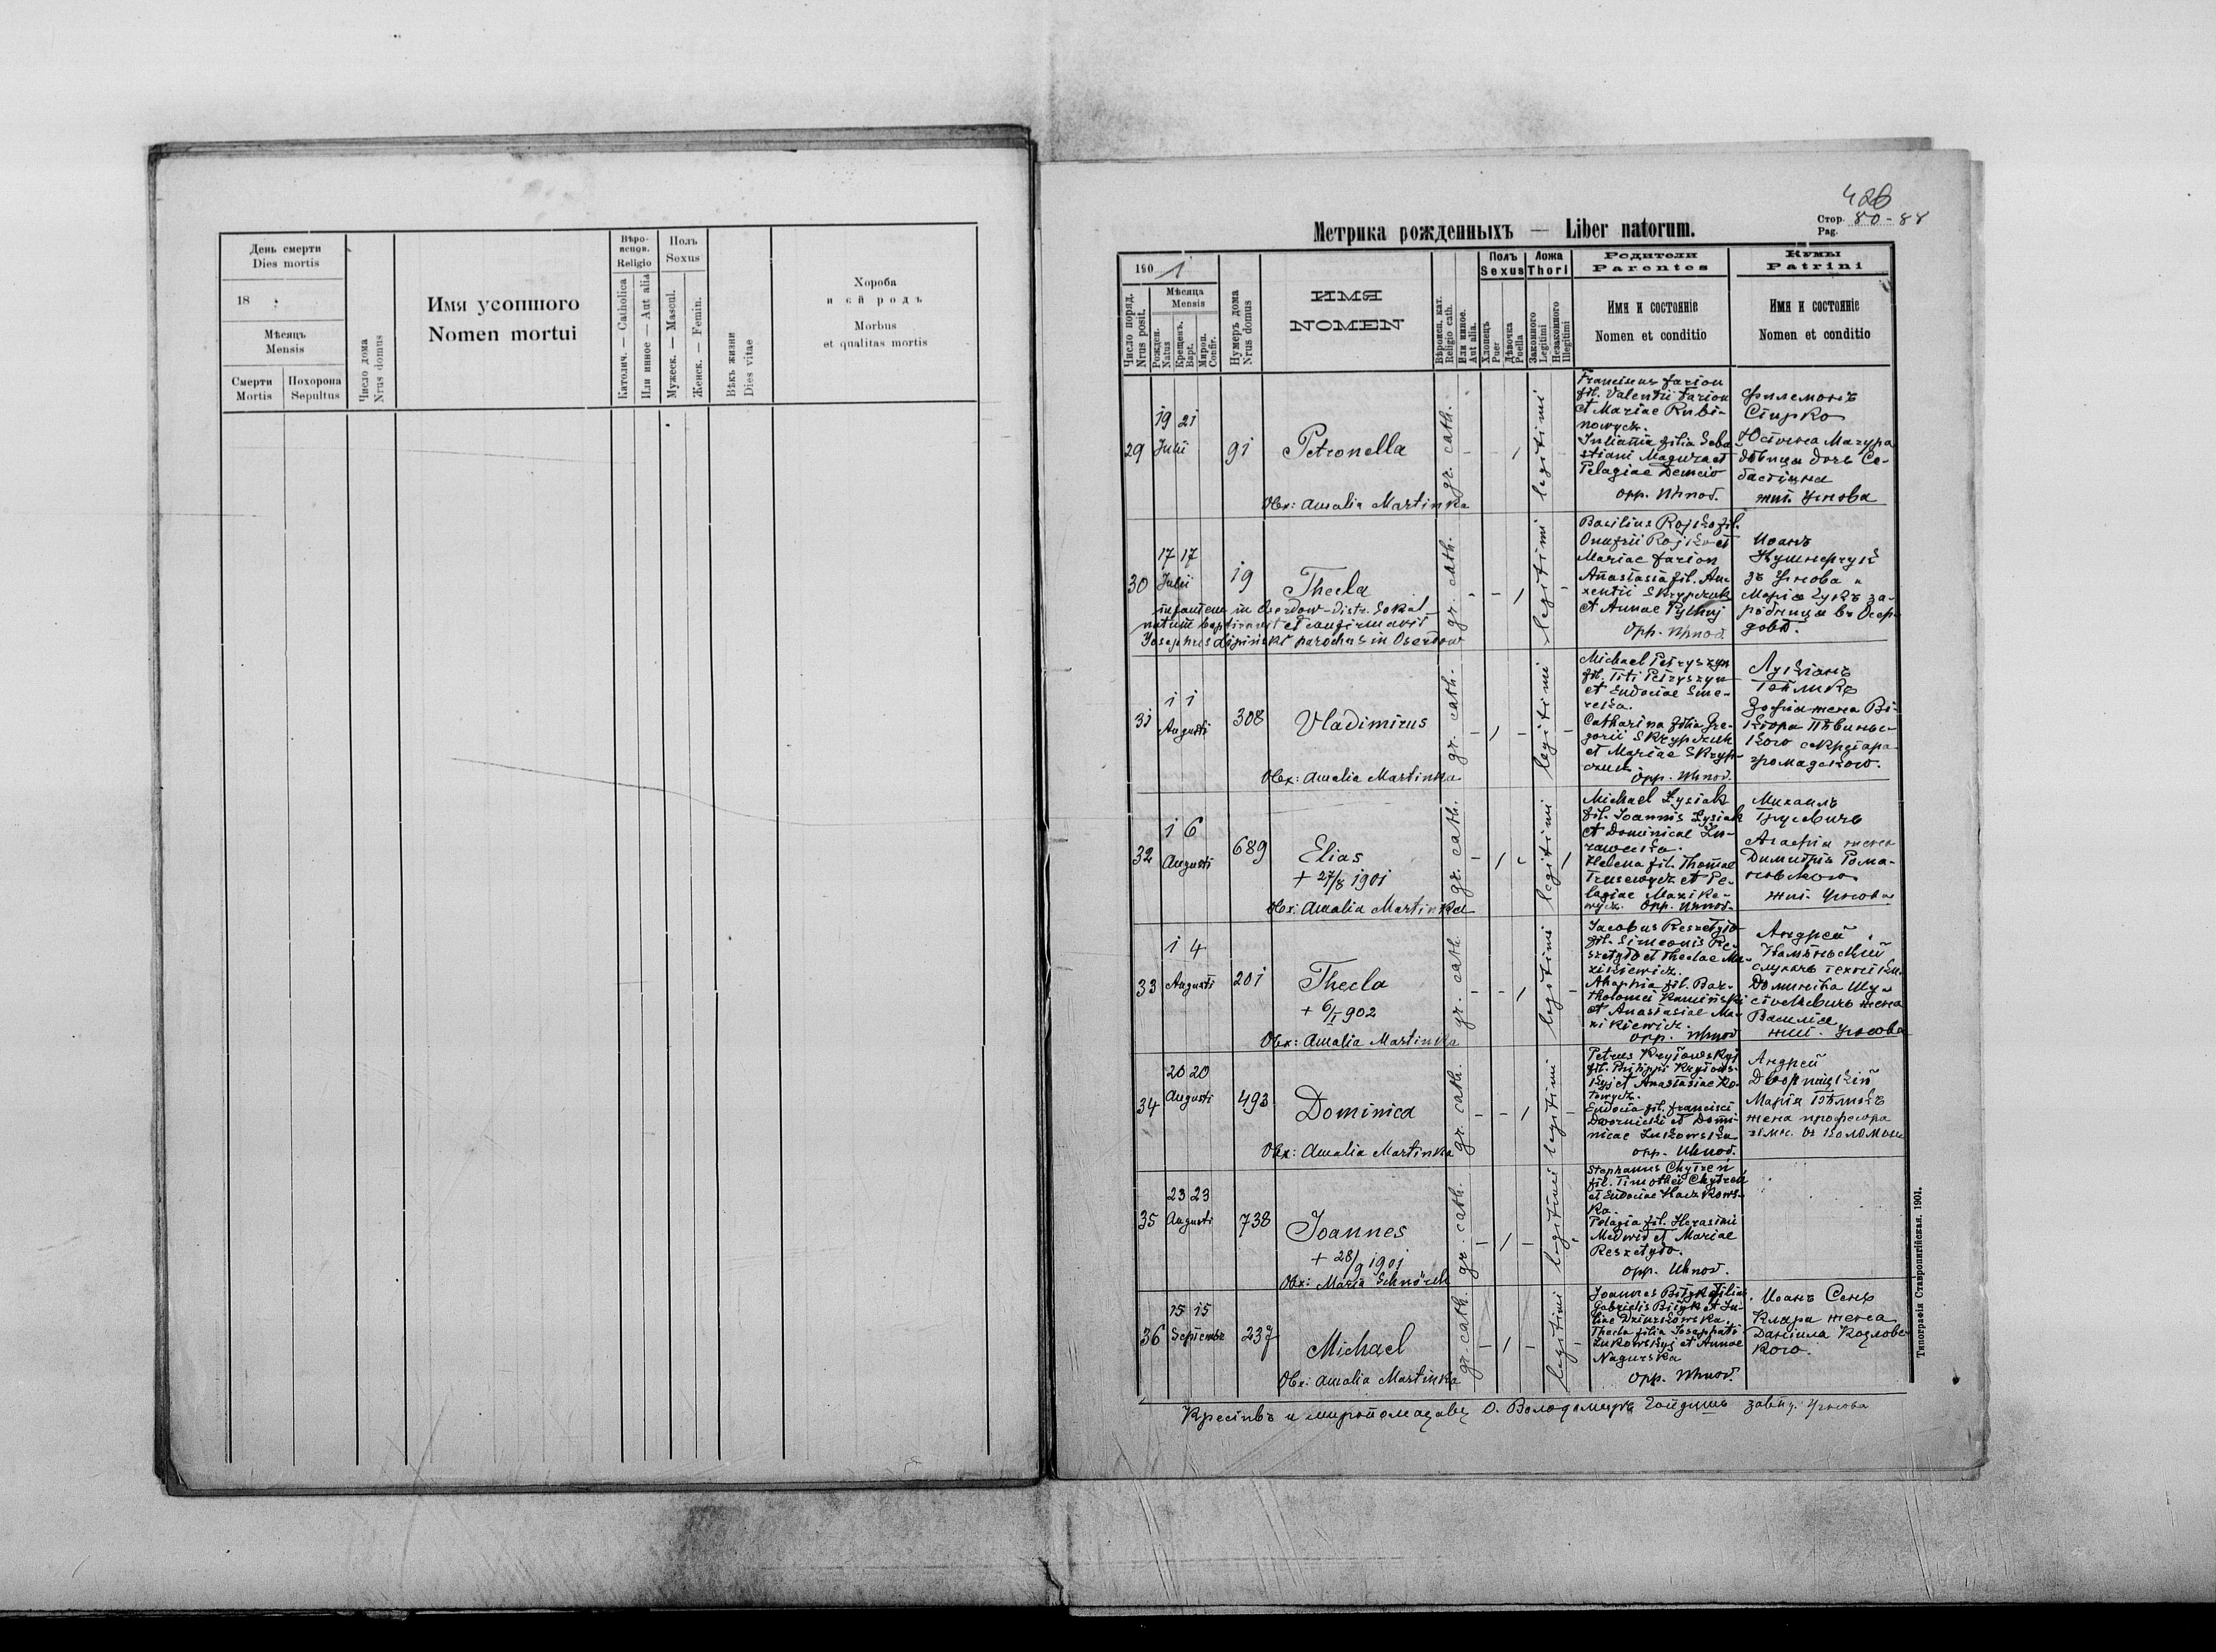 День смерти
Dies mortis
18
Мѣсяцъ
Mensis
Смерти
Mortis
Похорона
Sepultus
Число дома
Nrus domus
Имя усопшого
Nomen mortui
Вѣро-
исповѣд.
Religio
Католич. — Catholica
Или инное — Aut alia
Полъ
Sexus
Мужеск. — Mascul.
Женск. — Femin.
Вѣкъ жизни
Dies vitae
Хороба
и єй родъ
Morbus
et qualitas mortis
426
Стор. 80-88
Pag.
Метрика рожденныхъ — Liber natorum.
1901
Число поряд.
Nrus posit.
Мѣсяца
Mensis
Рожден.
Natus
Крещенъ.
Bapt.
Мѵроп.
Confir.
Нумеръ дома
Nrus domus
ИМЯ
NOMEN
Вѣроисп. кат.
Religio cath.
Или инное.
Aut alia.
Полъ
Sexus
Хлопецъ
Puer
Дѣвочка
Puella
Ложа
Thori
Законного
Legitimi
Незаконного
Illegitimi
Родители
Parentes
Имя и состояніе
Nomen et conditio
Кумы
Patrini
Имя и состояніе
Nomen et conditio
29
19 21
Julii
91
Petronella
Obx: Amalia Martinka
gr. cath.
legitimi
Franciscus Farion
fil. Valentii Farion
et Mariae Rubi-
nowycz.
Juliania filia Seba-
stiani Magura et
Pelagiae Demcio
opp. Uhnov.
Филемонъ
Сѣирко
Юстина Магура
дѣвица дочь Се-
бастіяна
жит. Угнова
30
17 17
Julii
19
Thecla
infantem in Oserdow - Distr. Sokal
natum baptizavit et confirmavit
Josephus Lipiński parochus in Oserdow
gr. cath.
legitimi
Basilius Rojko fil.
Onufrii Rojko et
Mariae Farion
Anastasia fil. Au-
xentii Skrypczuk
et Annae Pylnyj
opp. Uhnov.
Иоанъ
Кушнерчук
зъ Угнова
Марія Цукъ за-
робница въ Осер-
довѣ.
31
1 1
Augusti
308
Vladimirus
Obx: Amalia Martinka
gr. cath.
legitimi
Michael Petryszyn
fil. Titi Petryszyn
et Eudociae Sme-
reka.
Catharina filia Gre-
gorii Skrypczuk
et Mariae Skryp-
czuk.
opp. Uhnov.
Лукіянъ
Зофія жена Ви-
ктора
кого секретара
громадского.
32
1 6
Augusti
689
Elias
+ 27/8 1901
Obx: Amalia Martinka
gr. cath.
legitimi
Michael Łysiak
fil. Joannis Łysiak
et Dominicae Żu-
rawecka.
Helena fil. Thomae
Trusewycz et Pe-
lagiae Maxike-
wycz. opp. Uhnov.
Михаилъ
Трусевичь
Агафія жена
Димитрія Рома-
новского
жит. Угнова
33
1 4
Augusti
201
Thecla
+ 6/I 902
Obx: Amalia Martinka
gr. cath.
legitimi
Jacobus Reszetyło
fil. Simeonis Re-
szetyło et Theclae Ma-
xikiewicz.
Ahaphia fil. Bar-
tholomei Kamiński
et Anastasiae Ma-
xikiewicz.
opp. Uhnov
Андрей
Каминьский
слухачь техники
Доминика Шу-
жена
Василія
жит. Угнова
34
20 20
Augusti
493
Dominica
Obx: Amalia Martinka
gr. cath.
legitimi
Petrus Kryiowskyj
fil. Philippi Kryiows-
kyj et Anastasiae Ko-
towycz.
Eudocia fil. Francisci
Dwornicki et Domi-
nicae Łukowska
opp. Uhnov.
Андрей
Дворницкій
Марія
жена професора
гимн. въ Коломыи
35
23 23
Augusti
738
Joannes
+ 28/9 1901
Obx: Maria Schnörch
gr. cath.
legitimi
Stephanus Chytreń
fil. Timothei Chytreń
et Eudociae Kaczkows-
ka.
Pelagia fil. Herasimi
Medwid et Mariae
Reszetyło.
opp. Uhnov.
36
15 15
Septembr
237
Michael
Obx: Amalia Martinka
gr. cath.
legitimi
Joannes Bihyk filius
Gabrielis Bihyk et Ju-
liae Dziurkowska.
Thecla filia Josaphati
Łukowskyj et Annae
Nagurska
opp. Uhnov.
Иоанъ Сенів
Клара жена
Даніила Козлов-
кого.
Крестивъ и миропомазавъ О. Володимиръ Гайдукъ завѣд. Угнова
Типографія Ставропигійская. 1901.